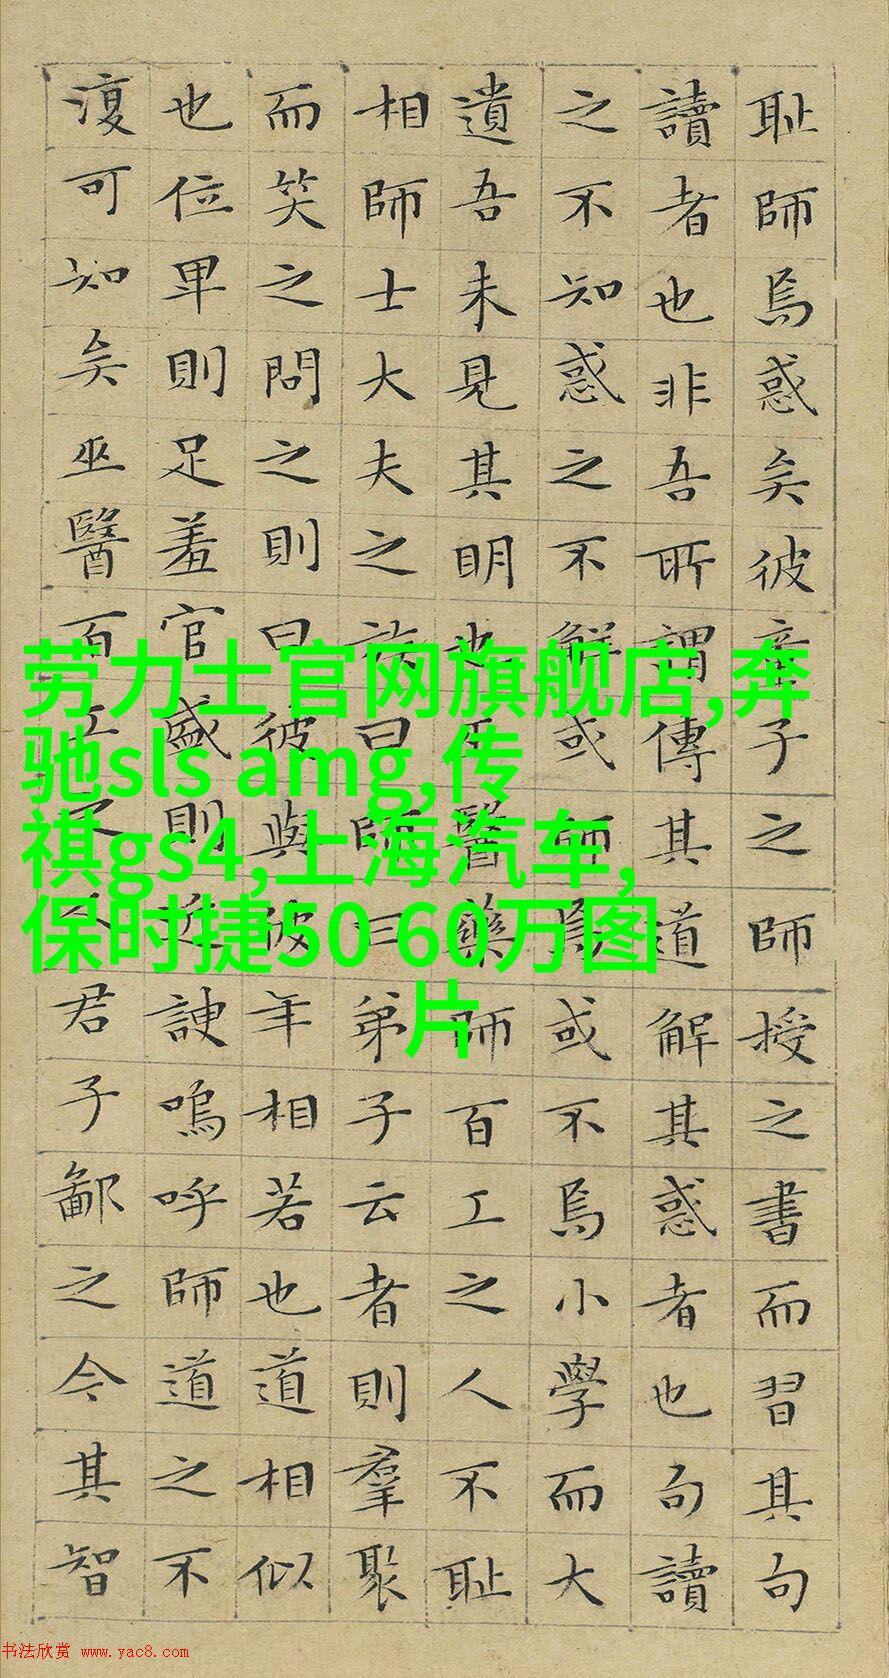 耻師焉惑矣彼童子之師授之書而習其句
讀者也非吾所謂傳其道解其惑者也句讀
之不知惑之不解或師焉或不焉小學而大
遺吾未見其明也巫醫藥師百工之人不耻
相師士大夫之族曰師曰弟子云者則羣聚
而笑之問之則曰彼與彼年相若也道相似
也位卑則足羞官盛則近諛嗚呼師道之不
復可知矣巫醫百工之人君子鄙之今其智
劳力士官网旗舰店,奔
驰sls amg,传
祺gs4,上海汽车,
保时捷50 60万图
片
书法欣赏 www.yac8.com